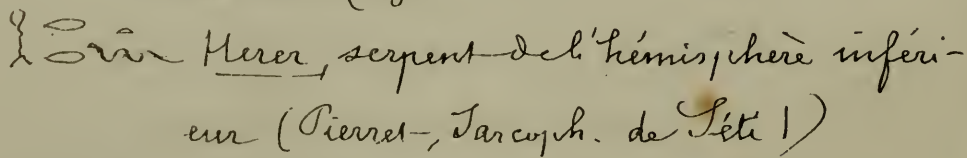 Herer, serpent de l'hémisphère inféri-
eur (Pierret, Sarcoph. de Séti I)